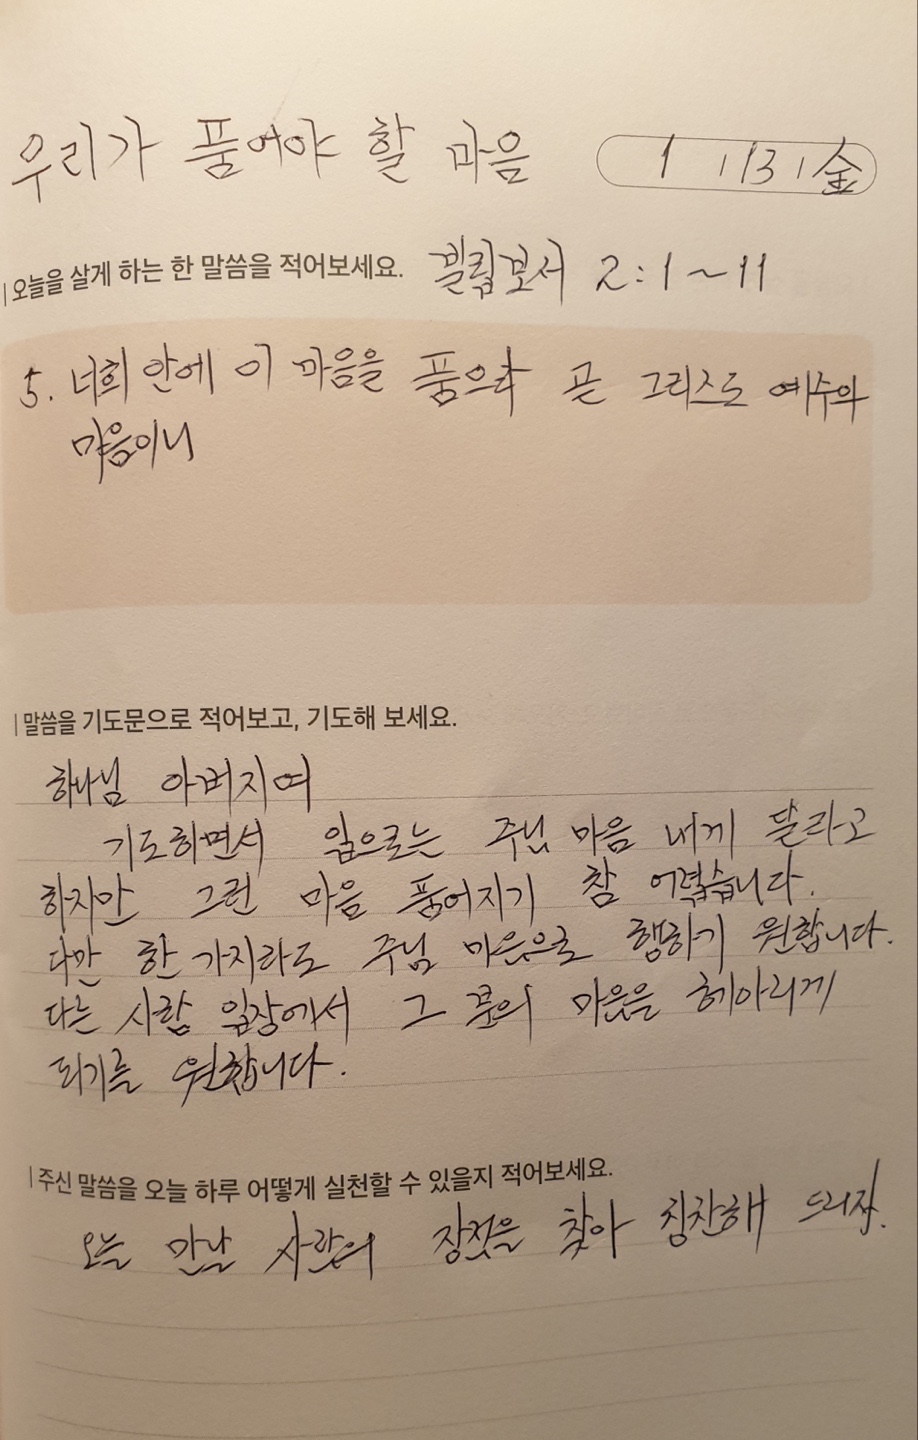 우리가 품어야 할 마음 1 / 13 / 金
오늘을 살게 하는 한 말씀을 적어보세요. 빌립보서 2:1~11
5. 너희 안에 이 마음을 품으라 곧 그리스도 예수의
마음이니
말씀을 기도문으로 적어보고, 기도해 보세요.
하나님 아버지여
기도하면서 입으로는 주님 마음 내게 달라고
하지만 그런 마음 품어지기 참 어렵습니다.
다만 한 가지라도 주님 마음으로 행하기 원합니다.
다른 사람 입장에서 그 분의 마음을 헤아리게
되기를 원합니다.
주신 말씀을 오늘 하루 어떻게 실천할 수 있을지 적어보세요.
오늘 만날 사람의 장점을 찾아 칭찬해 드리자.